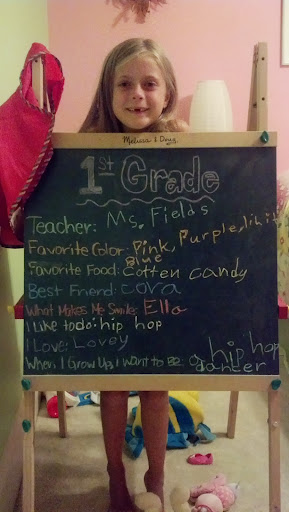 Melissa & Doug
1st Grade
Teacher: Ms. Fields
Favorite Color: Pink, Purple,
Blue
Favorite Food: Cotten candy
Best Friend: cora
What Makes Me Smile: Ella
I Like todo: hip hop
I Love: Lovey
When I Grow Up, I Want to Be: a hip hop
dancer